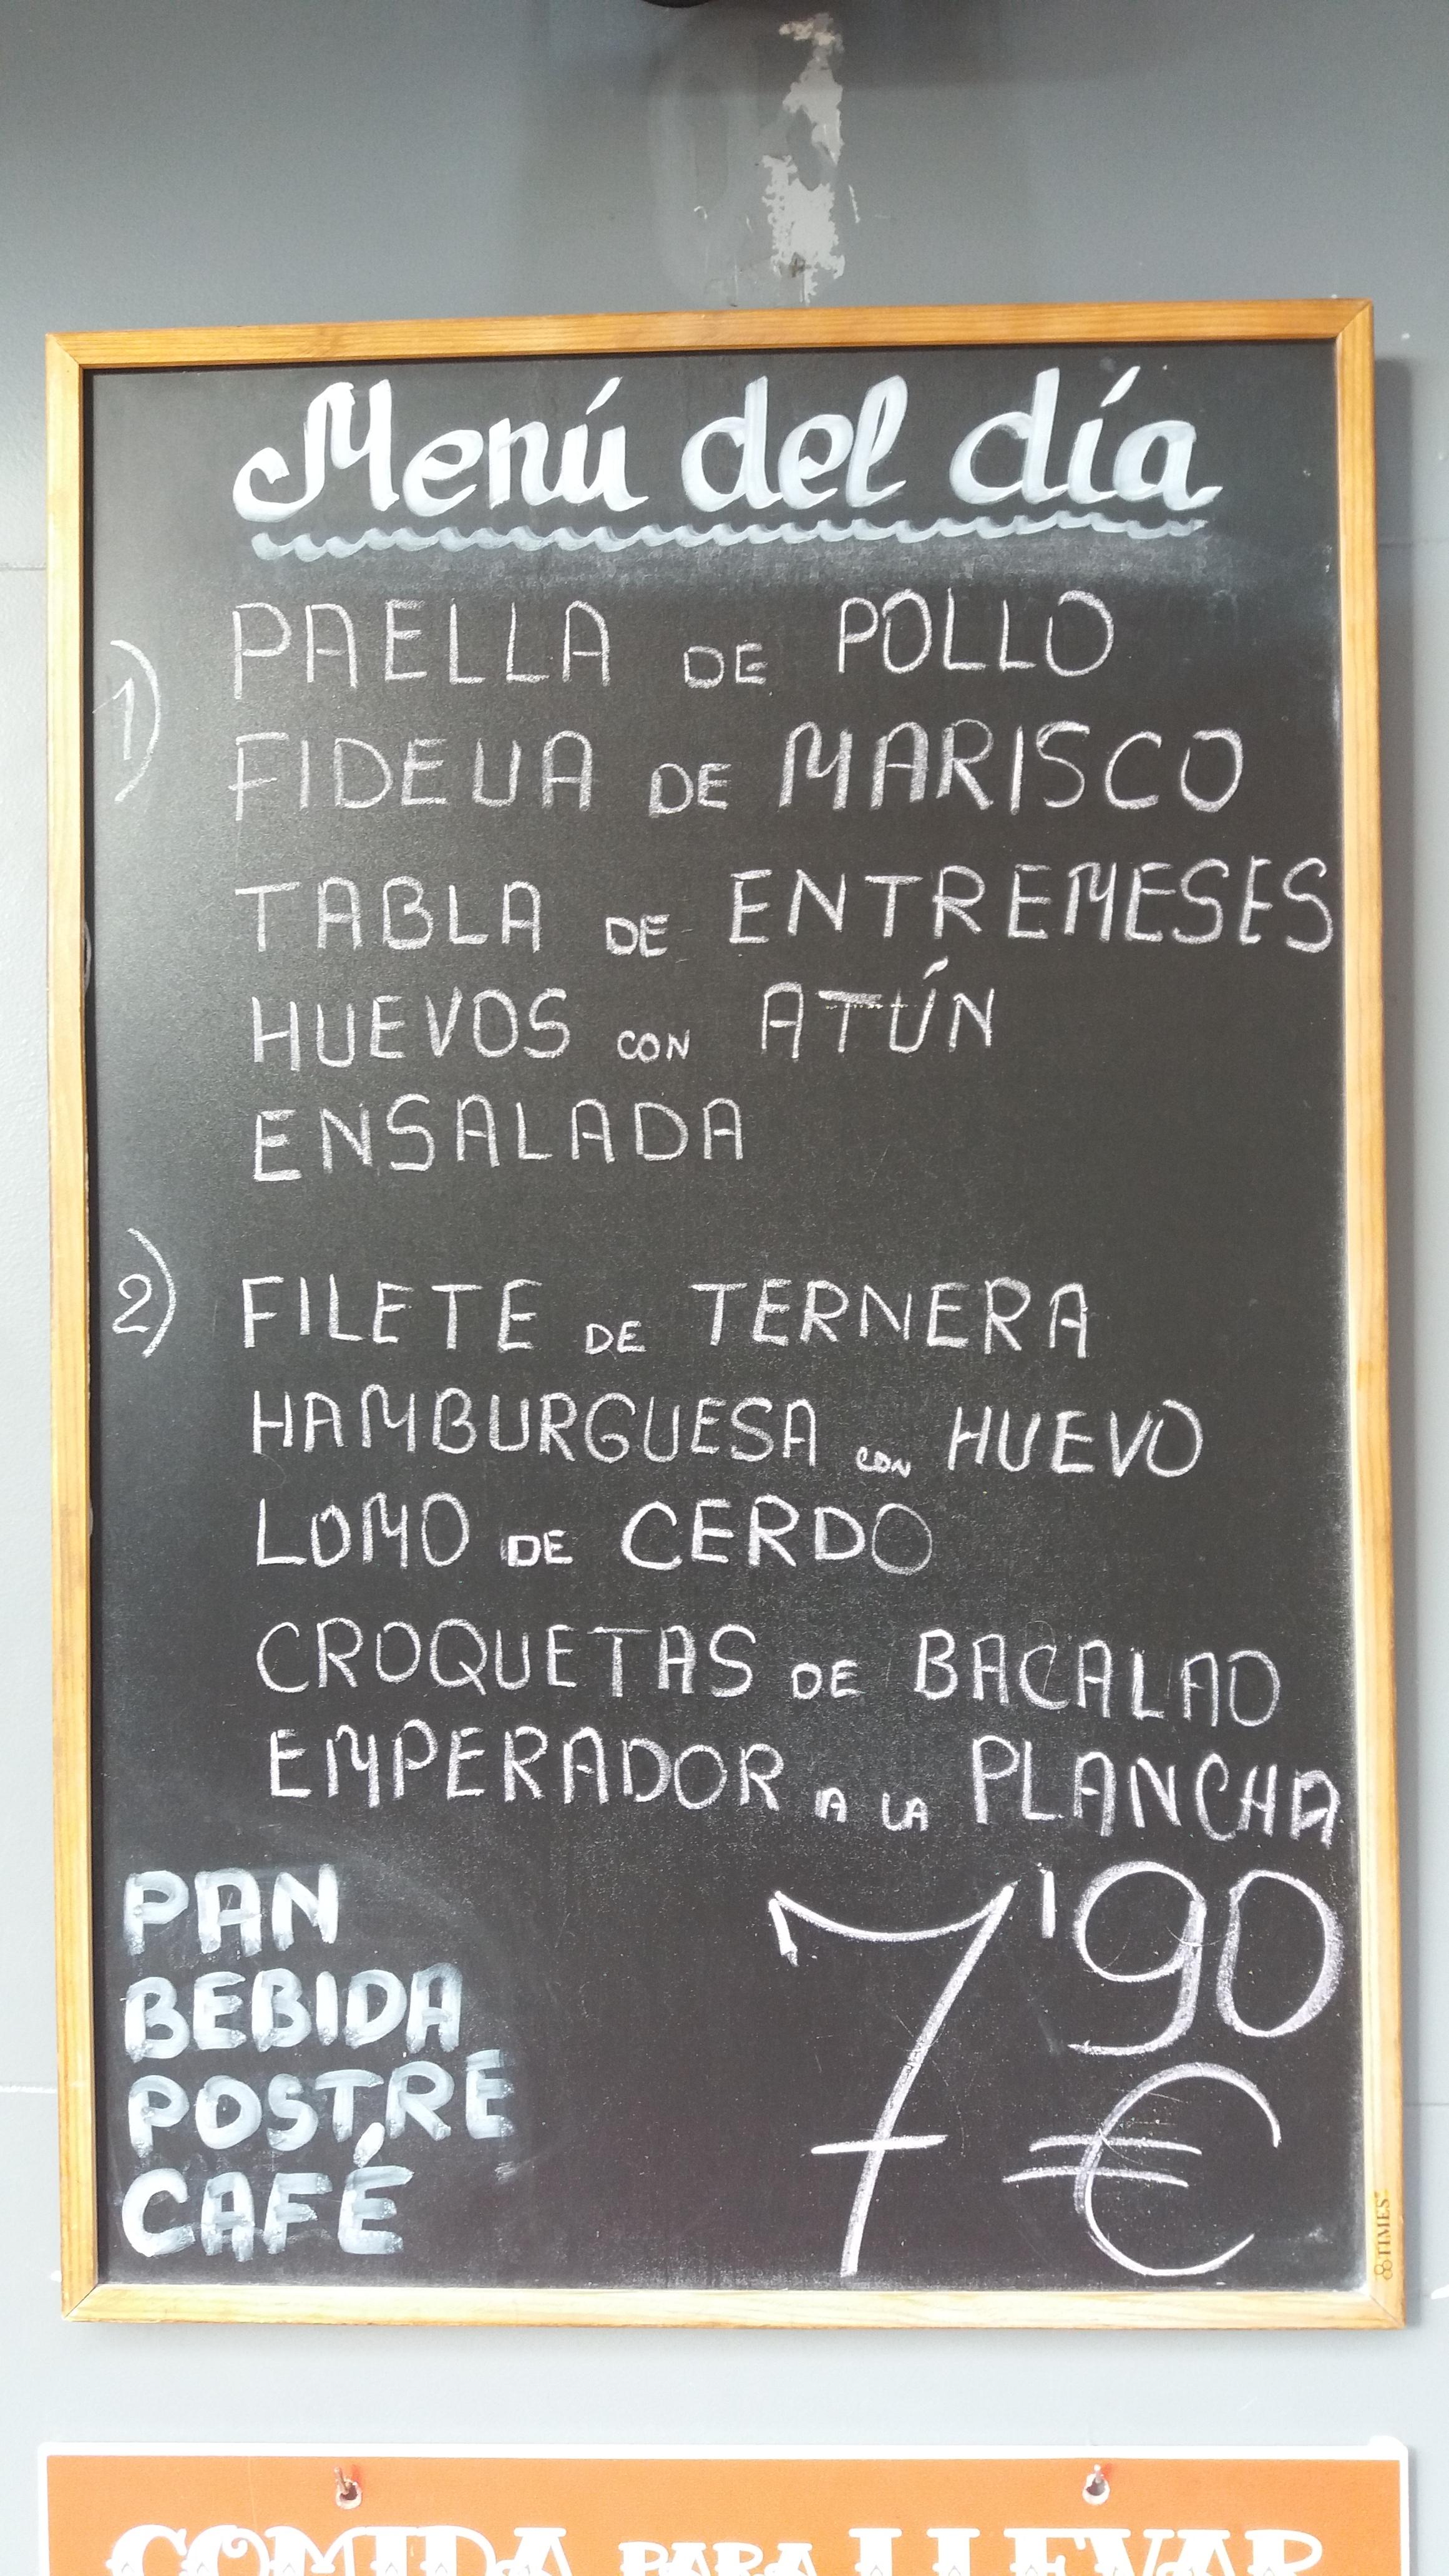 Menú del día
1) PAELLA DE POLLO
FIDEUA DE MARISCO
TABLA DE ENTREMESES
HUEVOS CON ATÚN
ENSALADA
2) FILETE DE TERNERA
HAMBURGUESA CON HUEVO
LOMO DE CERDO
CROQUETAS DE BACALAO
EMPERADOR A LA PLANCHA
PAN
BEBIDA
POSTRE
CAFÉ
7'90 €
TIMES
COMIDA PARA LLEVAR